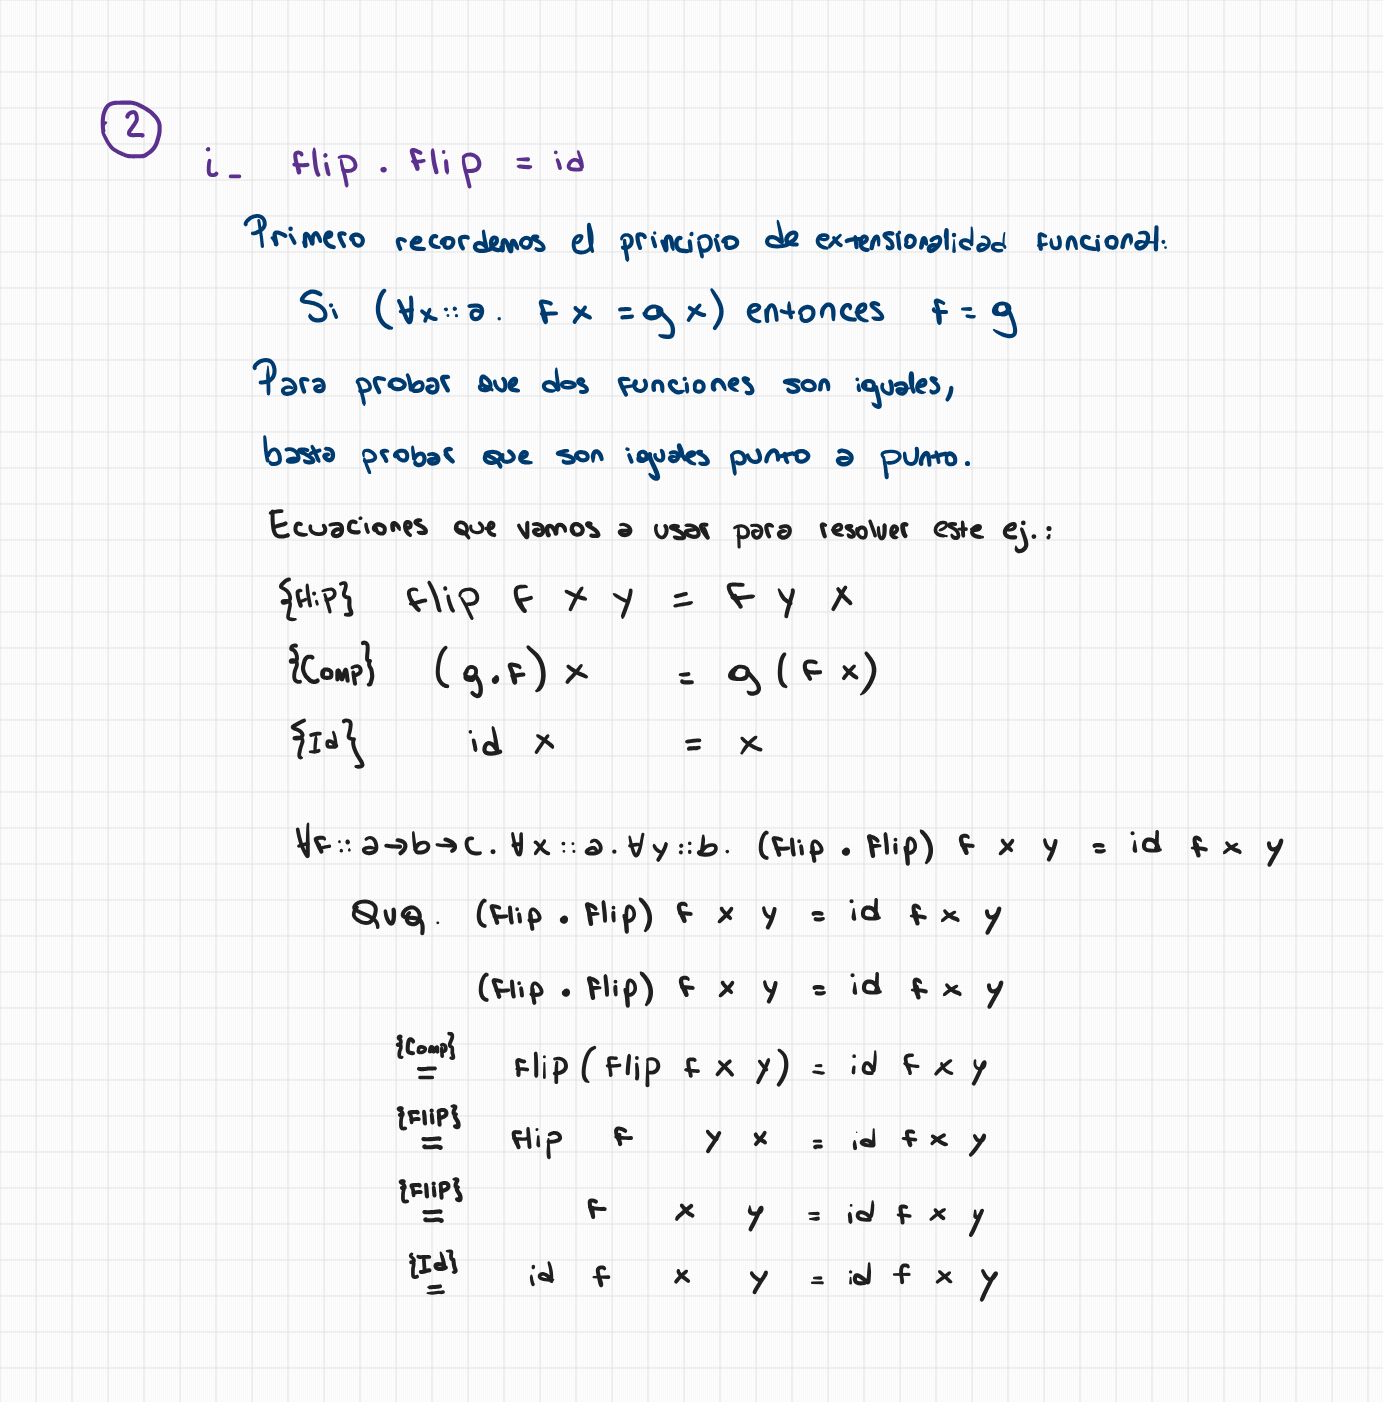 2
i- flip . flip = id
Primero recordemos el principio de extensionalidad funcional:
Si (∀x::a. f x = g x) entonces f = g
Para probar que dos funciones son iguales,
basta probar que son iguales punto a punto.
Ecuaciones que vamos a usar para resolver este ej.:
{flip} flip f x y = f y x
{Comp} (g.f) x = g (f x)
{Id} id x = x
∀f::a→b→c. ∀x::a. ∀y::b. (flip . flip) f x y = id f x y
Qvq. (flip . flip) f x y = id f x y
(flip . flip) f x y = id f x y
{Comp} = flip (flip f x y) = id f x y
{flip} = flip f y x = id f x y
{flip} = f x y = id f x y
{Id} = id f x y = id f x y